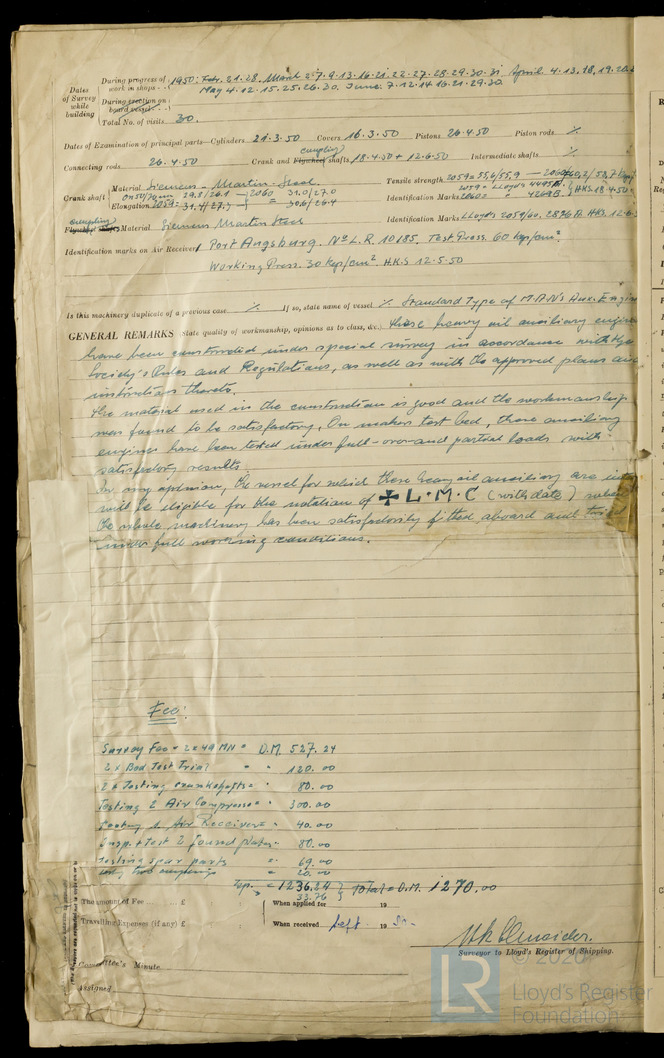 Dates of Survey while building
During progress of work in shops - - 1950: Feb. 21.28. March 2.7.9.13.16.21.22.27.28.29.30.31 April. 4.13.18.19.
May 4.12.15.25.26.30. June. 7.12.14.16.21.29.30.
During erection on board vessel - - -
Total No. of visits 30.
Dates of Examination of principal parts—Cylinders 21.3.50 Covers 16.3.50 Pistons 26.4.50 Piston rods %
Connecting rods 26.4.50 Crank and Flywheel coupling shafts 18.4.50 + 12.6.50 Intermediate shafts %
Crank shaft Material Siemens-Martin-Steel Tensile strength
Elongation Identification Marks
coupling
Flywheel shafts Material Siemens Martin Steel Identification Marks Lloyds 2054/60, 2896 B. HKS. 12.6.
Identification marks on Air Receiver 1 Port Augsburg. No L.R. 10185. Test Press. 60 kep/cm².
Working Press. 30 kep/cm². H.K.S 12.5.50
Is this machinery duplicate of a previous case % If so, state name of vessel % Standard Type of M.A.N's Aux. Engin
GENERAL REMARKS (State quality of workmanship, opinions as to class, &c.) These heavy oil auxiliary engines
have been constructed under special survey in accordance with the
Society's Rules and Regulations, as well as with the approved plans and
instruction thereto.
The material used in the construction is good and the workmanship
was found to be satisfactory. On makers test bed, these auxiliary
engines have been tested under full-over-and partial loads with
satisfactory results.
In my opinion, the vessel for which these heavy oil auxiliary are
will be eligible for the notation of ✠ L.M.C (with date) when
the whole machinery has been satisfactorily fitted aboard and tried
under full working conditions.
Fee:
Survey Fee = 2 x 49 MN = D.M. 527.24
2 x Bed Test Trial " " 120.00
2 x Testing crankshafts = " 80.00
Testing 2 Air Compressor = " 300.00
Testing 1 Air Receiver = " 40.00
Insp. + test 2 found plates = 80.00
Testing spar parts = 69.00
two couplings = 20.00
= 1236.24 } Total = D.M. 1270.00
33.76
The amount of Fee .. £ : : When applied for 19
Travelling Expenses (if any) £ : : When received Sept. 19 50.
Surveyor to Lloyd's Register of Shipping.
Committee's Minute
Assigned
© 2020
LR
Lloyd's Register
Foundation